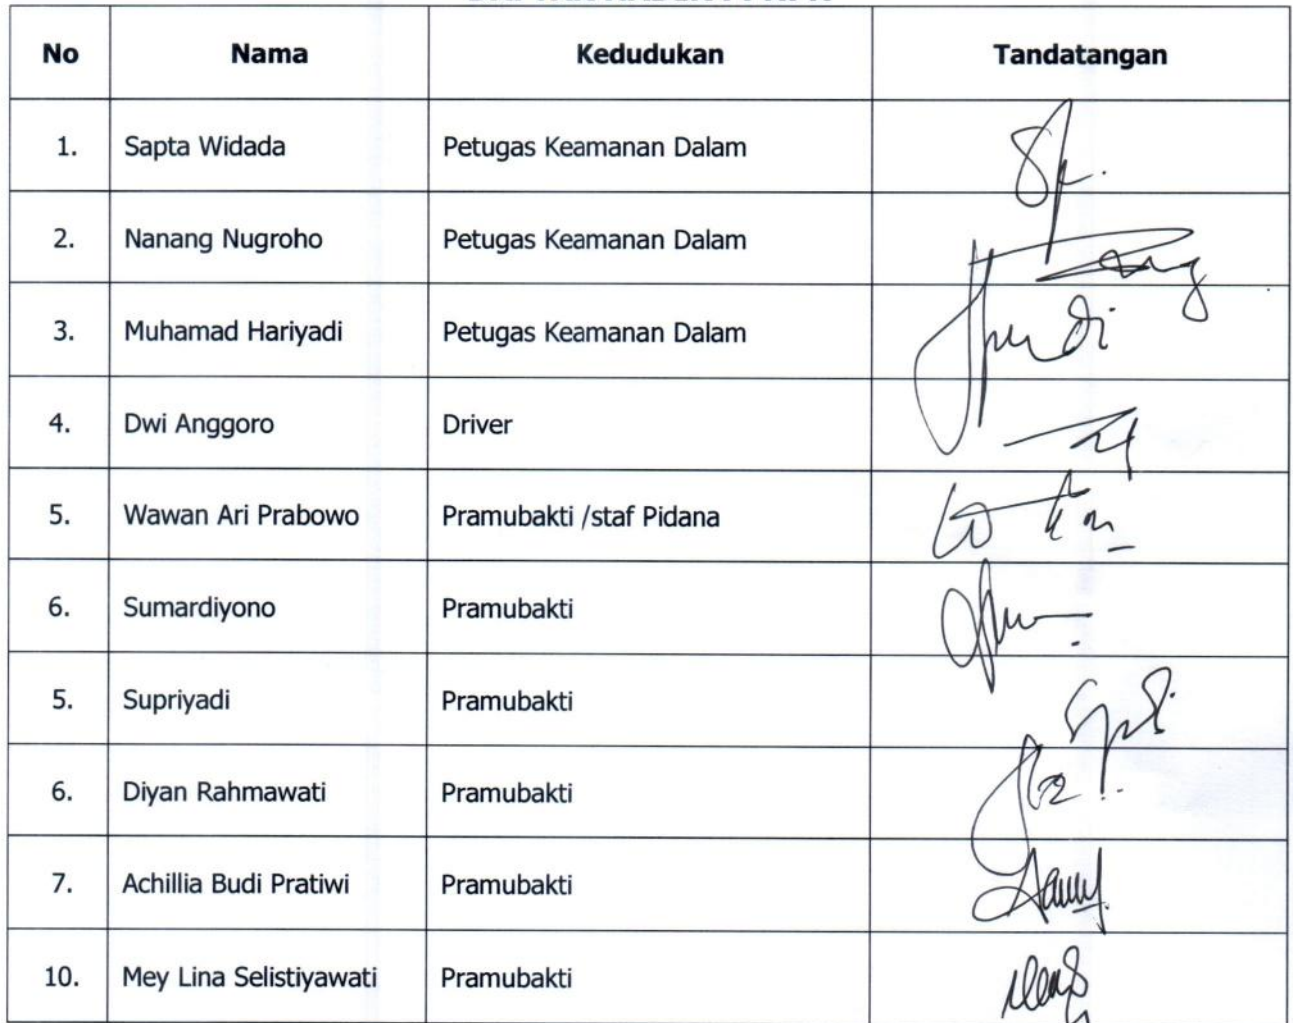 No Nama Kedudukan Tandatangan
1. Sapta Widada Petugas Keamanan Dalam
2. Nanang Nugroho Petugas Keamanan Dalam
3. Muhamad Hariyadi Petugas Keamanan Dalam
4. Dwi Anggoro Driver
5. Wawan Ari Prabowo Pramubakti /staf Pidana
6. Sumardiyono Pramubakti
5. Supriyadi Pramubakti
6. Diyan Rahmawati Pramubakti
7. Achillia Budi Pratiwi Pramubakti
10. Mey Lina Selistiyawati Pramubakti